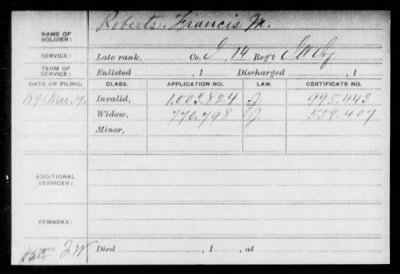 NAME OF SOLDIER: Roberts, Francis M.
SERVICE: Late rank, Co. I, 14 Reg't Ill Cav
TERM OF SERVICE: Enlisted , 1 Discharged , 1
DATE OF FILING. CLASS. APPLICATION NO. LAW. CERTIFICATE NO.
1891 Mar. Invalid, 1.003.824 995.443
Widow, 776.798 559.407
Minor,
ADDITIONAL SERVICES:
REMARKS:
Died , 1 , at